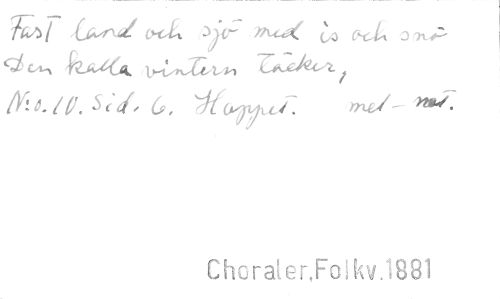 Fast land och sjö med is och snö
Den kalla vintern täcker,
N:o. 10. Sid. 6. Hoppet. mel-not.
Choraler,Folkv.1881